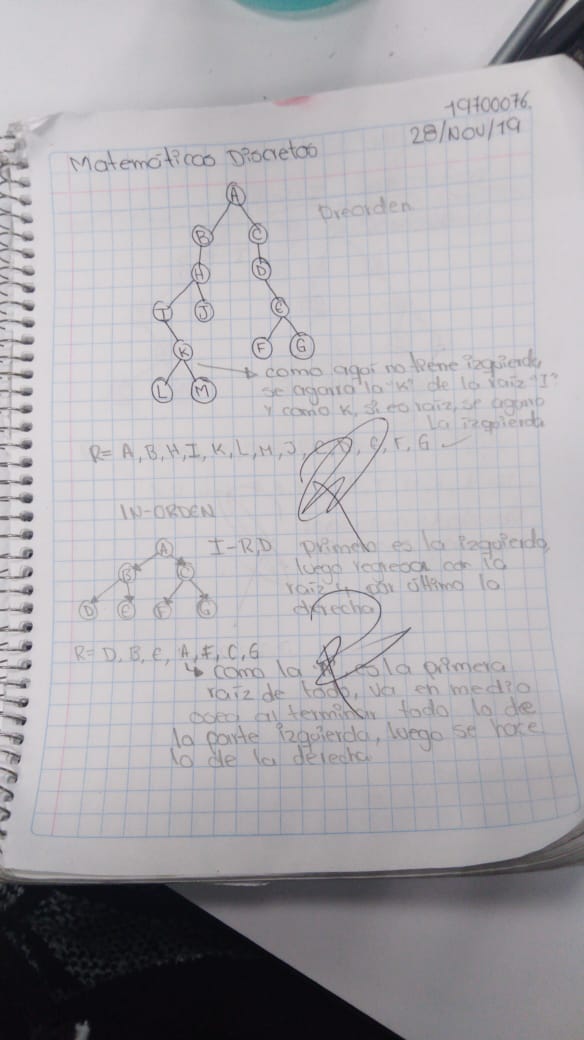 19700076.
28/NOV/19
Matemáticas Discretas
Preorden
A
B C
H D
I J E
K F G
L M
como aqui no tiene izquierda
se agarra la "K" de la raiz "I"
Y como K, si es raiz, se agarra
la izquierda
R= A, B, H, I, K, L, M, J, C, D, E, F, G
IN-ORDEN
I-R,D
A
B C
D E F G
primero es la izquierda,
luego regresa con la
raiz y por último la
derecha
R= D, B, E, A, F, C, G
como la es la primera
raiz de todo, va en medio
osea al terminar todo lo de
la parte izquierda, luego se hace
lo de la derecha